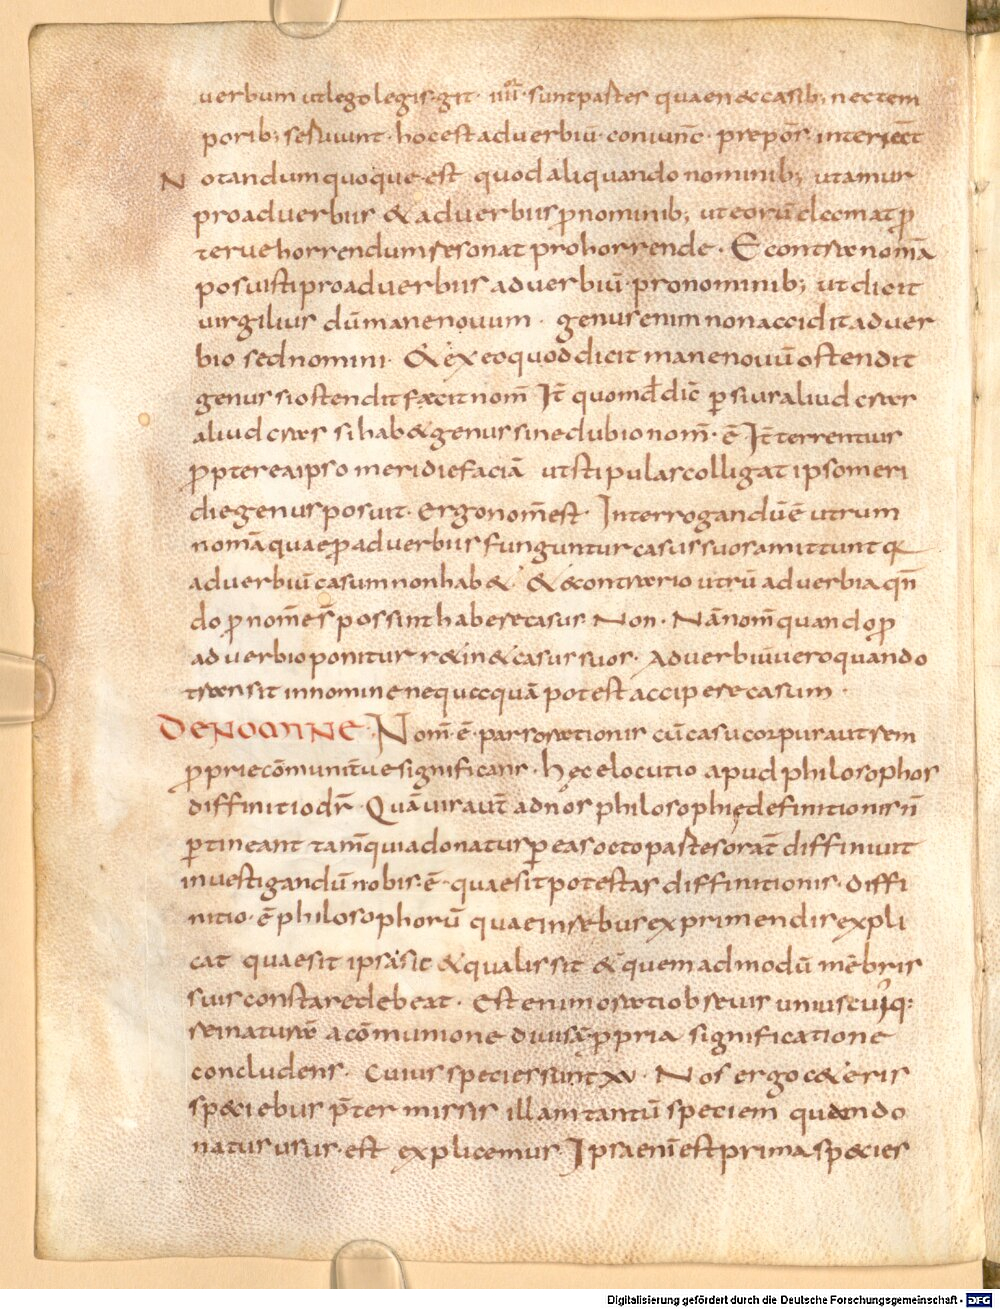 uerbum utlego legis·git· iiii·suntpartes quaen&casib; nectem
porib; seruiunt· hocest aduerbiū· coniunc̄· prepōs· interiect̄
Notandumquoque·est quodaliquandonominib; utamur
proaduerbiis & aduerbiis ꝑnominib; uteorū eleemat ꝓ
teruehorrendumresonat prohorrende· Econtra nom̄a
posuistiproaduerbiis aduerbiū·pronominib; utdicit
uirgilius dūmanenouum· genusenimnonacciditaduer
bio sednomini· & exeoquoddicit manenouūostendit
genus siostenditfacitnom̄ It̄ quomd̄ dic̄ ꝑsiuraliudcras
aliudcras sihab&genussinedubionom̄·ē It̄terrentius
ꝓptereaipso meridiefaciā utstipulascolligat ipsomeri
diegenusposuit· ergonom̄est· Interrogandūē utrum
nom̄aquaeꝓaduerbiis funguntur casussuosamittunt q
aduerbiūcasumnonhab& & econtrario utrū aduerbiaqn̄
do ꝓnom̄es̄ possinthaberecasus Non· Nānom̄quandoꝓ
aduerbioponitur r&in&casussuos· Aduerbiūueroquando
transit innominenequaquā potest accipere casum·
DENOMINE· Nom̄·ē· parsorationis cūcasucorpusautrem
ꝓpriecōmunit̄uesignificans· hęcelocutio apudphilosophos
diffinitiodr̄· Quāuisaut̄ adnōs philosophiędefinitionis n̄
ꝑtineant tam̄quiadonatus ꝑeasoctopartesorat̄ diffiniuit
inuestigandūnobis·ē· quaesitpotestas diffinitionis· diffi
nitio·ē philosophorū quaeinrebusexprimendisexpli
cat quaesit ipsāsit &qualissit &quemadmodū mēbris
suisconstaredebeat· Estenimoratiobreuis uniuscuiq:
reinaturā acōmunione diuisā ꝓpria significatione
concludens· Cuius speciessunt xv· Nos ergoc&eris
speciebus p̄termissis illamtantū speciem quādondo
natususus·est explicemus Ipsaenī est prima species
Digitalisierung gefördert durch die Deutsche Forschungsgemeinschaft - DFG